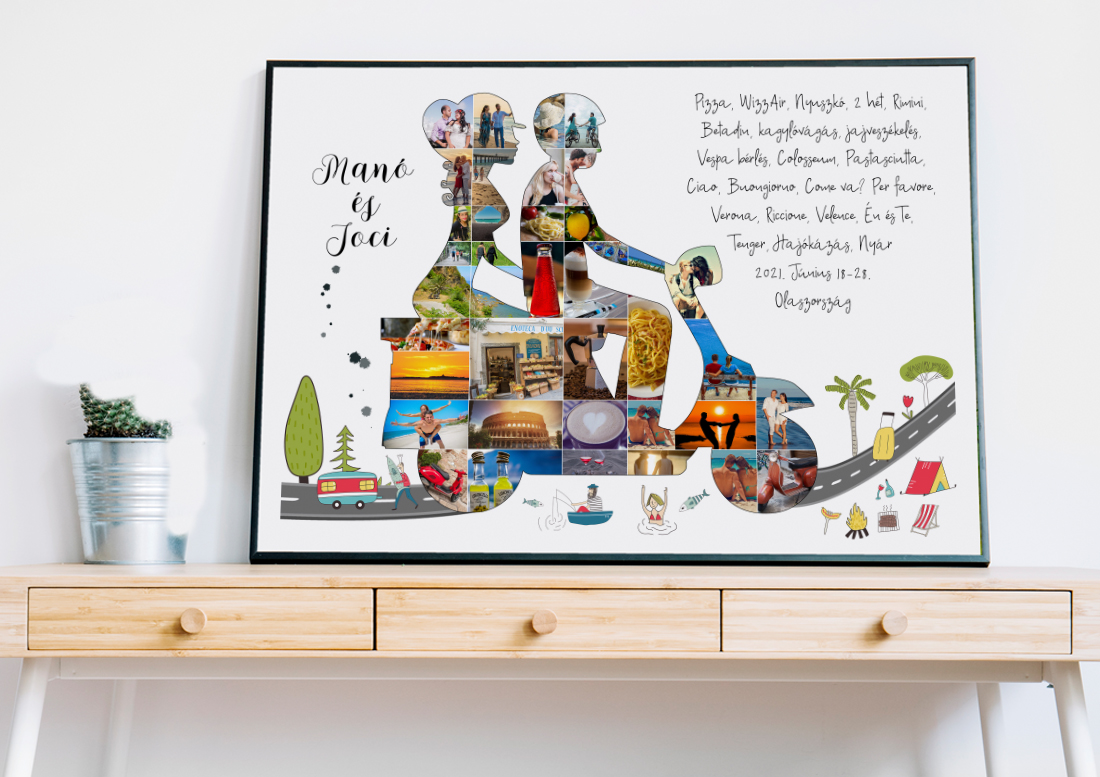 Manó
és
Joci
Pizza, WizzAir, Nyuszkó, 2 hét, Rimini,
Betadin, kagylóvágás, jajveszékelés,
Vespa bérlés, Colosseum, Pastasciutta,
Ciao, Buongiorno, Come va? Per favore,
Verona, Riccione, Velence, Én és Te,
Tenger, Hajókázás, Nyár
2021. Június 18-28.
Olaszország